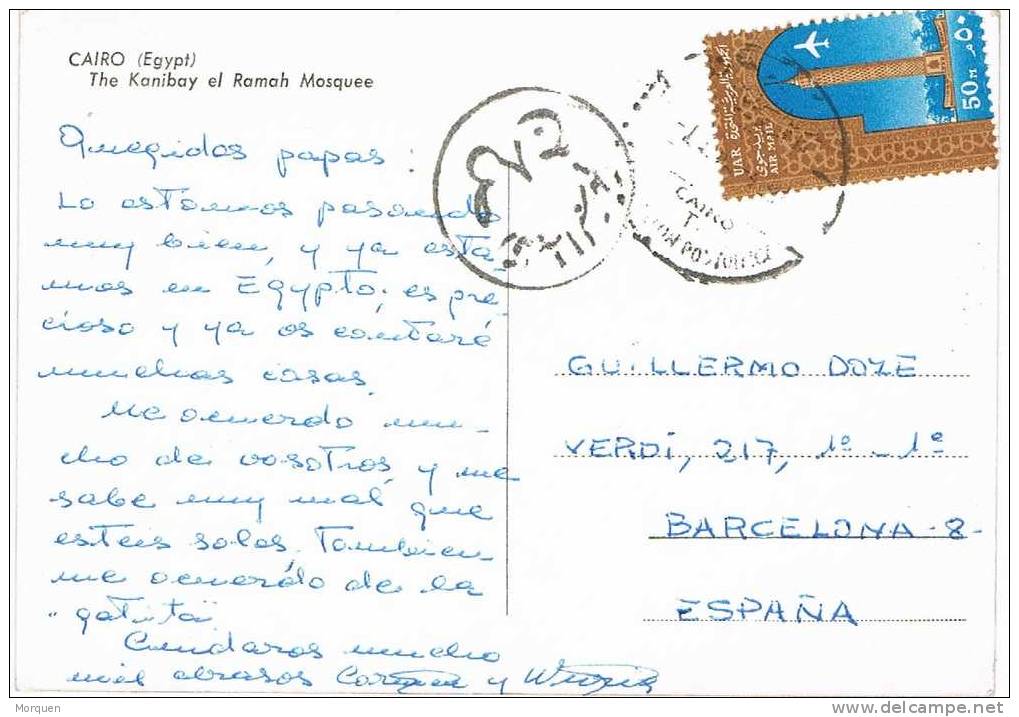 CAIRO (Egypt)
The Kanibay el Ramah Mosquee
Queridos papas:
Lo estamos pasando
muy bien, y ya esta-
mos en Egypto; es pre-
cioso y ya os contaré
muchas cosas.
Me acuerdo mu-
cho de vosotros, y me
sabe muy mal que
esteis solos. Tambien
me acuerdo de la
"gatita".
Cuidaros mucho
mil abrasos Carmen y
50 M
٥٠ م
UAR
الجمهورية العربية المتحدة
AIR MAIL
بريد جوى
CAIRO
GUILLERMO DOZE
VERDI, 217, 1º - 1º
BARCELONA -8-
ESPAÑA
Morquen
delcampe.net